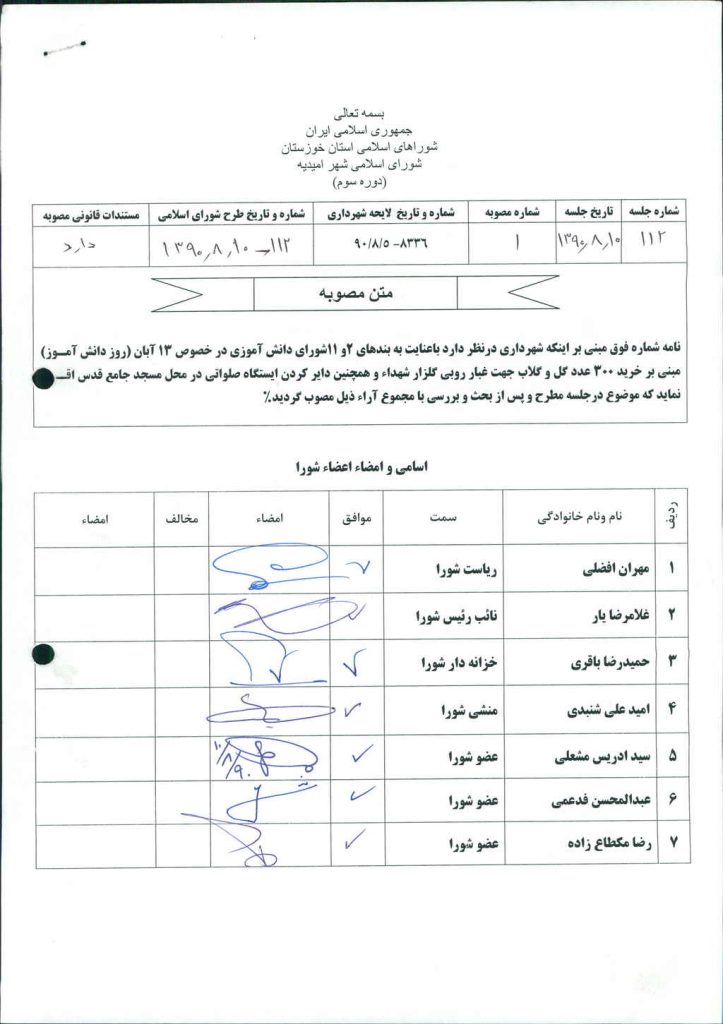 بسمه تعالی
جمهوری اسلامی ایران
شوراهای اسلامی استان خوزستان
شورای اسلامی شهر امیدیه
(دوره سوم)
شماره جلسه تاریخ جلسه شماره مصوبه شماره و تاریخ لایحه شهرداری شماره و تاریخ طرح شورای اسلامی مستندات قانونی مصوبه
۱۱۲ ۱۳۹۰٫۸٫۱۰ ۱ ۸۳۳۶- ۹۰/۸/۵ ۱۱۲ - ۱۳۹۰٫۸٫۱۰ دارد
متن مصوبه
نامه شماره فوق مبنی بر اینکه شهرداری درنظر دارد باعنایت به بندهای ۲و ۱۱شورای دانش آموزی در خصوص ۱۳ آبان (روز دانش آمـوز)
مبنی بر خرید ۳۰۰ عدد گل و گلاب جهت غبار روبی گلزار شهداء و همچنین دایر کردن ایستگاه صلواتی در محل مسجد جامع قدس اقـ
نماید که موضوع درجلسه مطرح و پس از بحث و بررسی با مجموع آراء ذیل مصوب گردید.٪
اسامی و امضاء اعضاء شورا
ردیف نام ونام خانوادگی سمت موافق امضاء مخالف امضاء
۱ مهران افضلی ریاست شورا
۲ غلامرضا یار نائب رئیس شورا
۳ حمیدرضا باقری خزانه دار شورا
۴ امید علی شنبدی منشی شورا
۵ سید ادریس مشعلی عضو شورا ۹۰/۸/۱۰
۶ عبدالمحسن فدعمی عضو شورا
۷ رضا مکطاع زاده عضو شورا